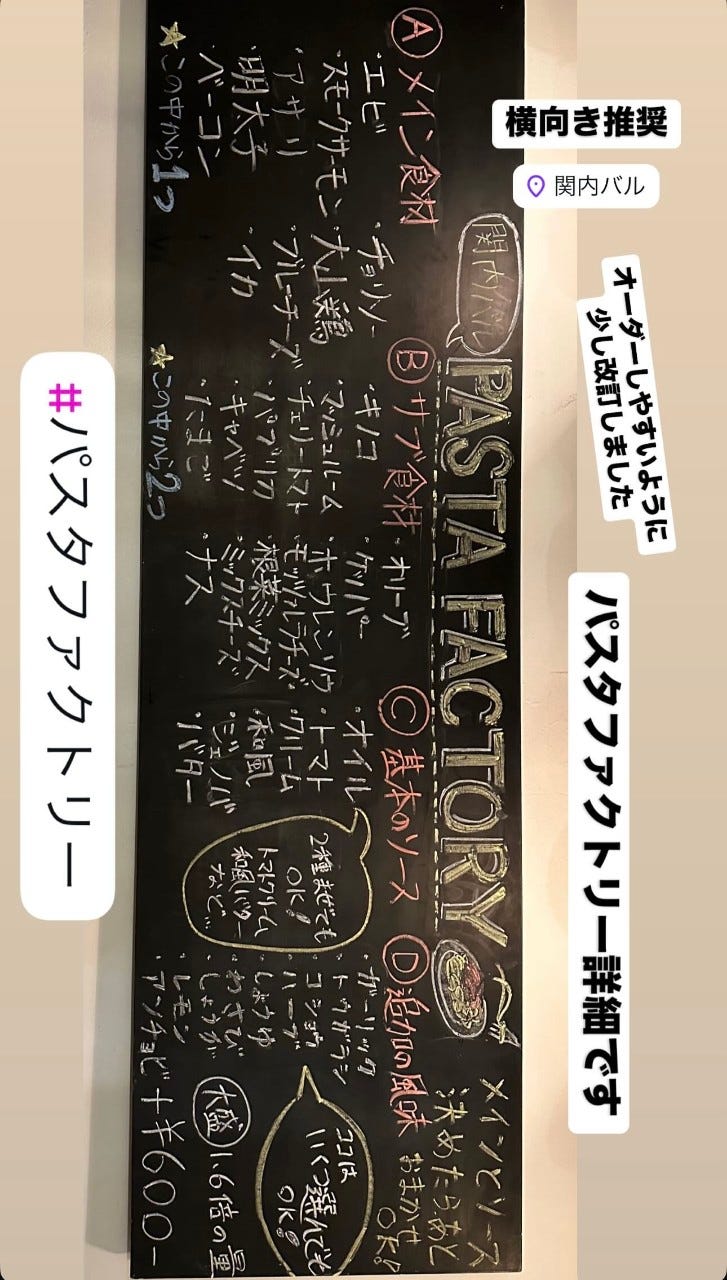 横向き推奨
関内バル
オーダーしやすいように
少し改訂しました
パスタファクトリー詳細です
関内バル
PASTA FACTORY
メインとソース
決めたらあと
おまかせ
OK!
Ⓐメイン食材
・エビ
・スモークサーモン
・アサリ
・明太子
・ベーコン
・チョリソー
・大山鶏
・ブルーチーズ
・イカ
☆この中から1つ
Ⓑサブ食材
・キノコ
・マッシュルーム
・チェリートマト
・パプリカ
・キャベツ
・たまご
・オリーブ
・ケッパー
・ホウレンソウ
・モッツァレラチーズ
・根菜ミックス
・ミックスチーズ
・ナス
☆この中から2つ
Ⓒ基本のソース
・オイル
・トマト
・クリーム
・和風
・ジェノバ
・バター
2種混ぜても
OK!
トマトクリーム
和風バター
など…
Ⓓ追加の風味
・ガーリック
・トウガラシ
・コショウ
・ハーブ
・しょうゆ
・わさび
・しょうが
・レモン
・アンチョビ
ココは
いくつ選んでも
OK!
大盛 1.6倍の量
+¥600-
#パスタファクトリー